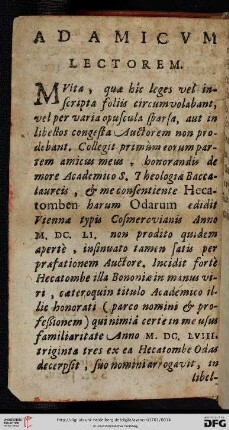 AD AMICVM
LECTOREM.
MVlta, quæ hîc leges vel in-
scripta foliis circumvolabant,
vel per varia opuscula sparsa, aut in
libellos congesta Auctorem non pro-
debant. Collegit primùm eorum par-
tem amicus meus, honorandis de
more Academico S. Theologiæ Bacca-
laureis, & me consentiente Heca-
tomben harum Odarum edidit
Viennæ typis Cosmerovianis Anno
M. DC. LI. non prodito quidem
apertè, insinuato tamen satis per
præfationem Auctore. Incidit fortè
Hecatombe illa Bononiæ in manus vi-
ri, cæteroquin titulo Academico il-
lic honorati (parco nomini & pro-
fessioni) qui nimiâ certè in me usus
familiaritate Anno M. DC. LVIII.
triginta tres ex ea Hecatombe Odas
decerpsit, suo nomini arrogavit, in
libel-
DFG